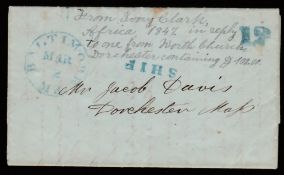 From Ivory Clark,
Africa 1842 in reply
to one from Worth Church
Dorchester containing $
BALTIMORE Md
MAR
2
12
SHIP
Mr Jacob Davis
Dorchester Mass